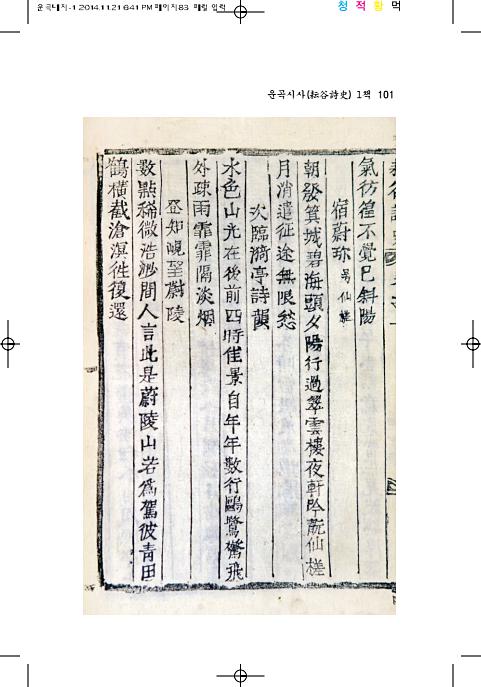 운곡내지-1 2014.11.21 6:41 PM 페이지83 매킬 입력
청 적 황 먹
운곡시사(耘谷詩史) 1책 101
氣彷徨不覺已斜陽
宿蔚珍 號仙槎
朝發箕城碧海頭夕陽行過翠雲樓夜軒吟翫仙槎
月消遣征途無限愁
次臨漪亭詩韻
水色山光在後前四時佳景自年年數行鷗鷺驚飛
外疎雨霏霏隔淡烟
登知峴望蔚陵
數點稀微浩渺間人言此是蔚陵山若爲駕彼靑田
鶴橫截滄溟徃復還